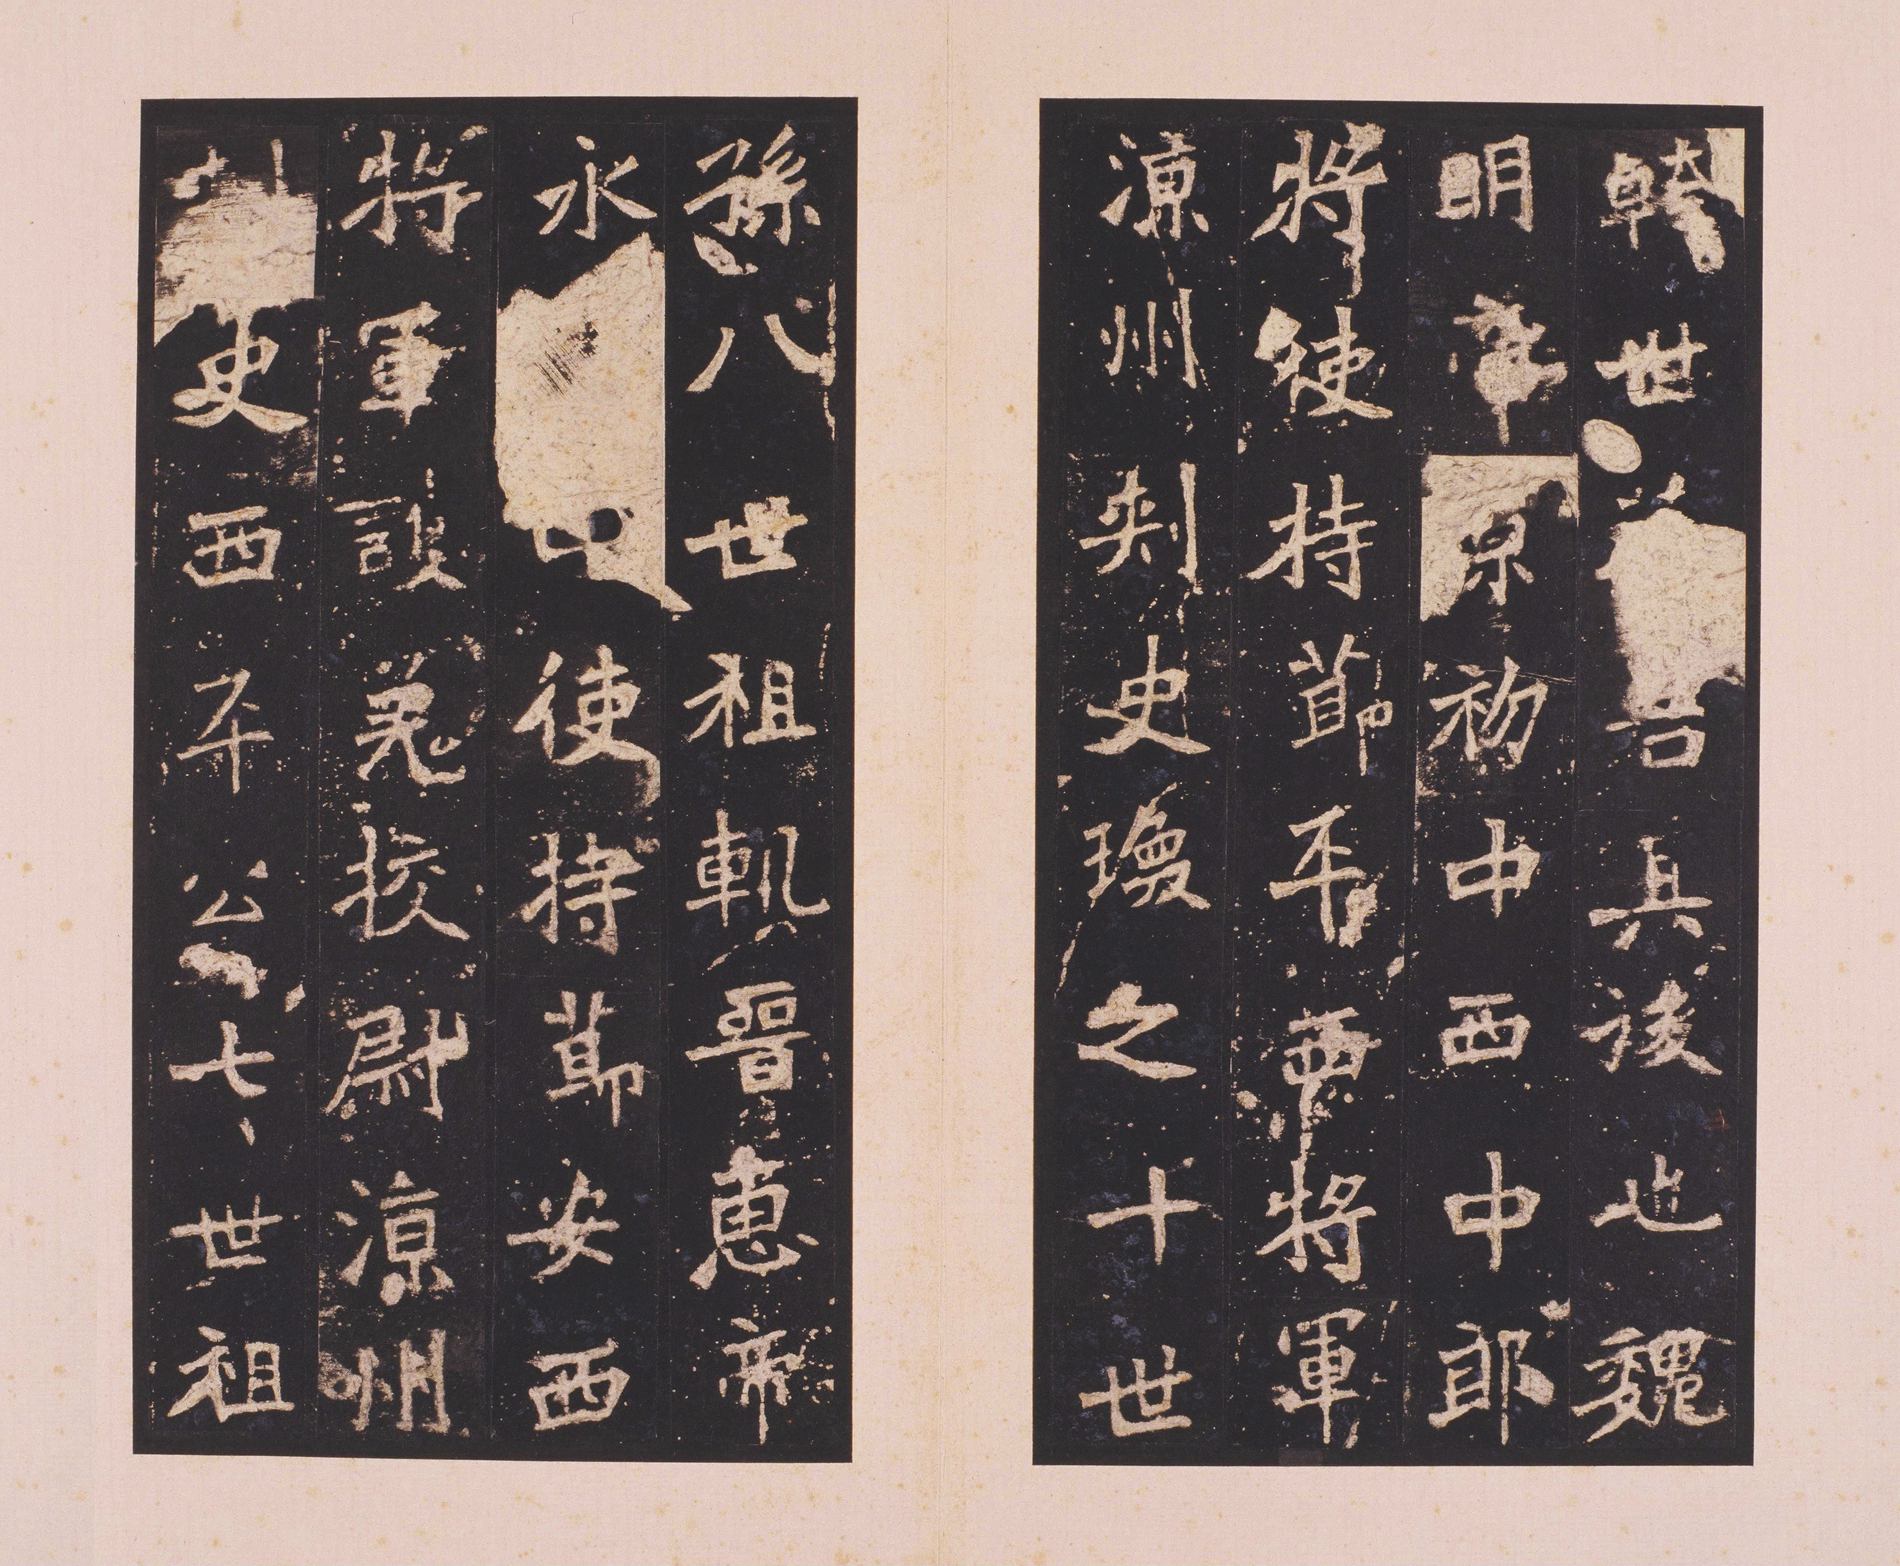 幹世其後也魏
明帝景初中西中郎
將使持節平西將軍
涼州刾史瑍之十世
孫八世祖軌晉惠帝
永中使持節安西
將軍護羌校尉涼州
史西平公七世祖